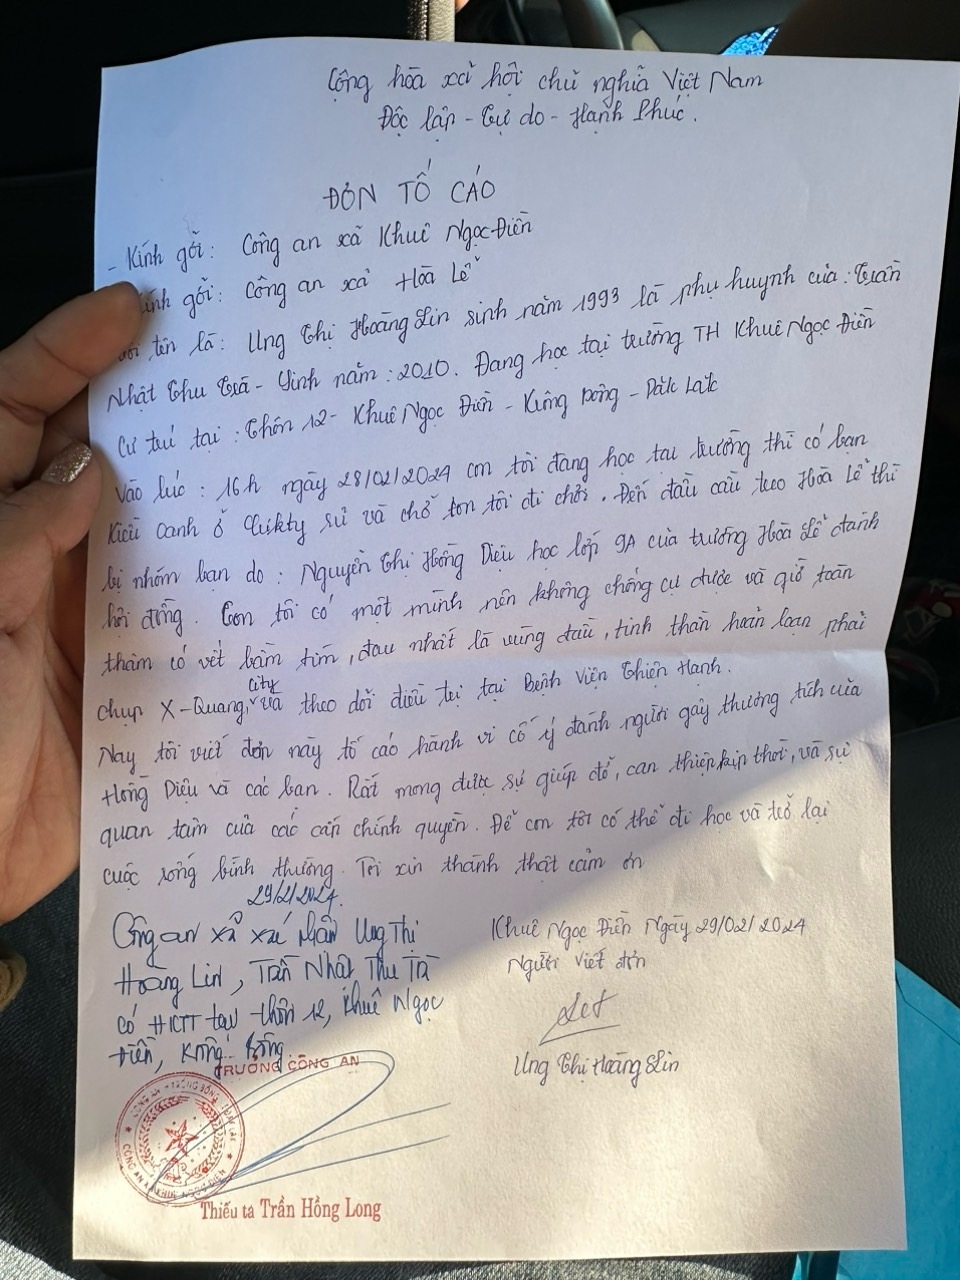 Cộng hòa xã hội chủ nghĩa Việt Nam
Độc lập - Tự do - Hạnh Phúc.
ĐƠN TỐ CÁO
- Kính gởi: Công an xã Khuê Ngọc Điền
Kính gởi: Công an xã Hòa Lễ
tên là: Ung Thị Hoàng Lin sinh năm 1993 là phụ huynh của: Trần
Nhật Thu Trà - Sinh năm: 2010. Đang học tại trường TH Khuê Ngọc Điền
Cư trú tại: Thôn 12 - Khuê Ngọc Điền - Krông Bông - Đăk Lăk
Vào lúc: 16h ngày 28/02/2024 con tôi đang học tại trường thì có bạn
Kiều Oanh ở sử và chở con tôi đi chơi. Đến đầu cầu treo Hòa Lễ thì
bị nhóm bạn do: Nguyễn Thị Hồng Diệu học lớp 9A của trường Hòa Lễ đánh
hội đồng. Con tôi có một mình nên không chống cự được và giờ toàn
thân có vết bầm tím, đau nhất là vùng đầu, tinh thần hoản loạn phải
chụp X-Quang, City và theo dõi điều trị tại Bệnh Viện Thiện Hạnh.
Nay tôi viết đơn này tố cáo hành vi cố ý đánh người gây thương tích của
Hồng Diệu và các bạn. Rất mong được sự giúp đỡ, can thiệp kịp thời, và sự
quan tâm của các cấp chính quyền. Để con tôi có thể đi học và trở lại
cuộc sống bình thường. Tôi xin thành thật cảm ơn
29/2/2024.
Công an xã xác nhận Ung Thị
Hoàng Lin, Trần Nhật Thu Trà
có HKTT tại thôn 12, Khuê Ngọc
Điền, Krông Bông.
Khuê Ngọc Điền Ngày 29/02/2024
Người viết đơn
Ung Thị Hoàng Lin
TRƯỞNG CÔNG AN
CÔNG AN H.KRÔNG BÔNG T.ĐẮK LẮK
CÔNG AN XÃ KHUÊ NGỌC ĐIỀN
Thiếu tá Trần Hồng Long